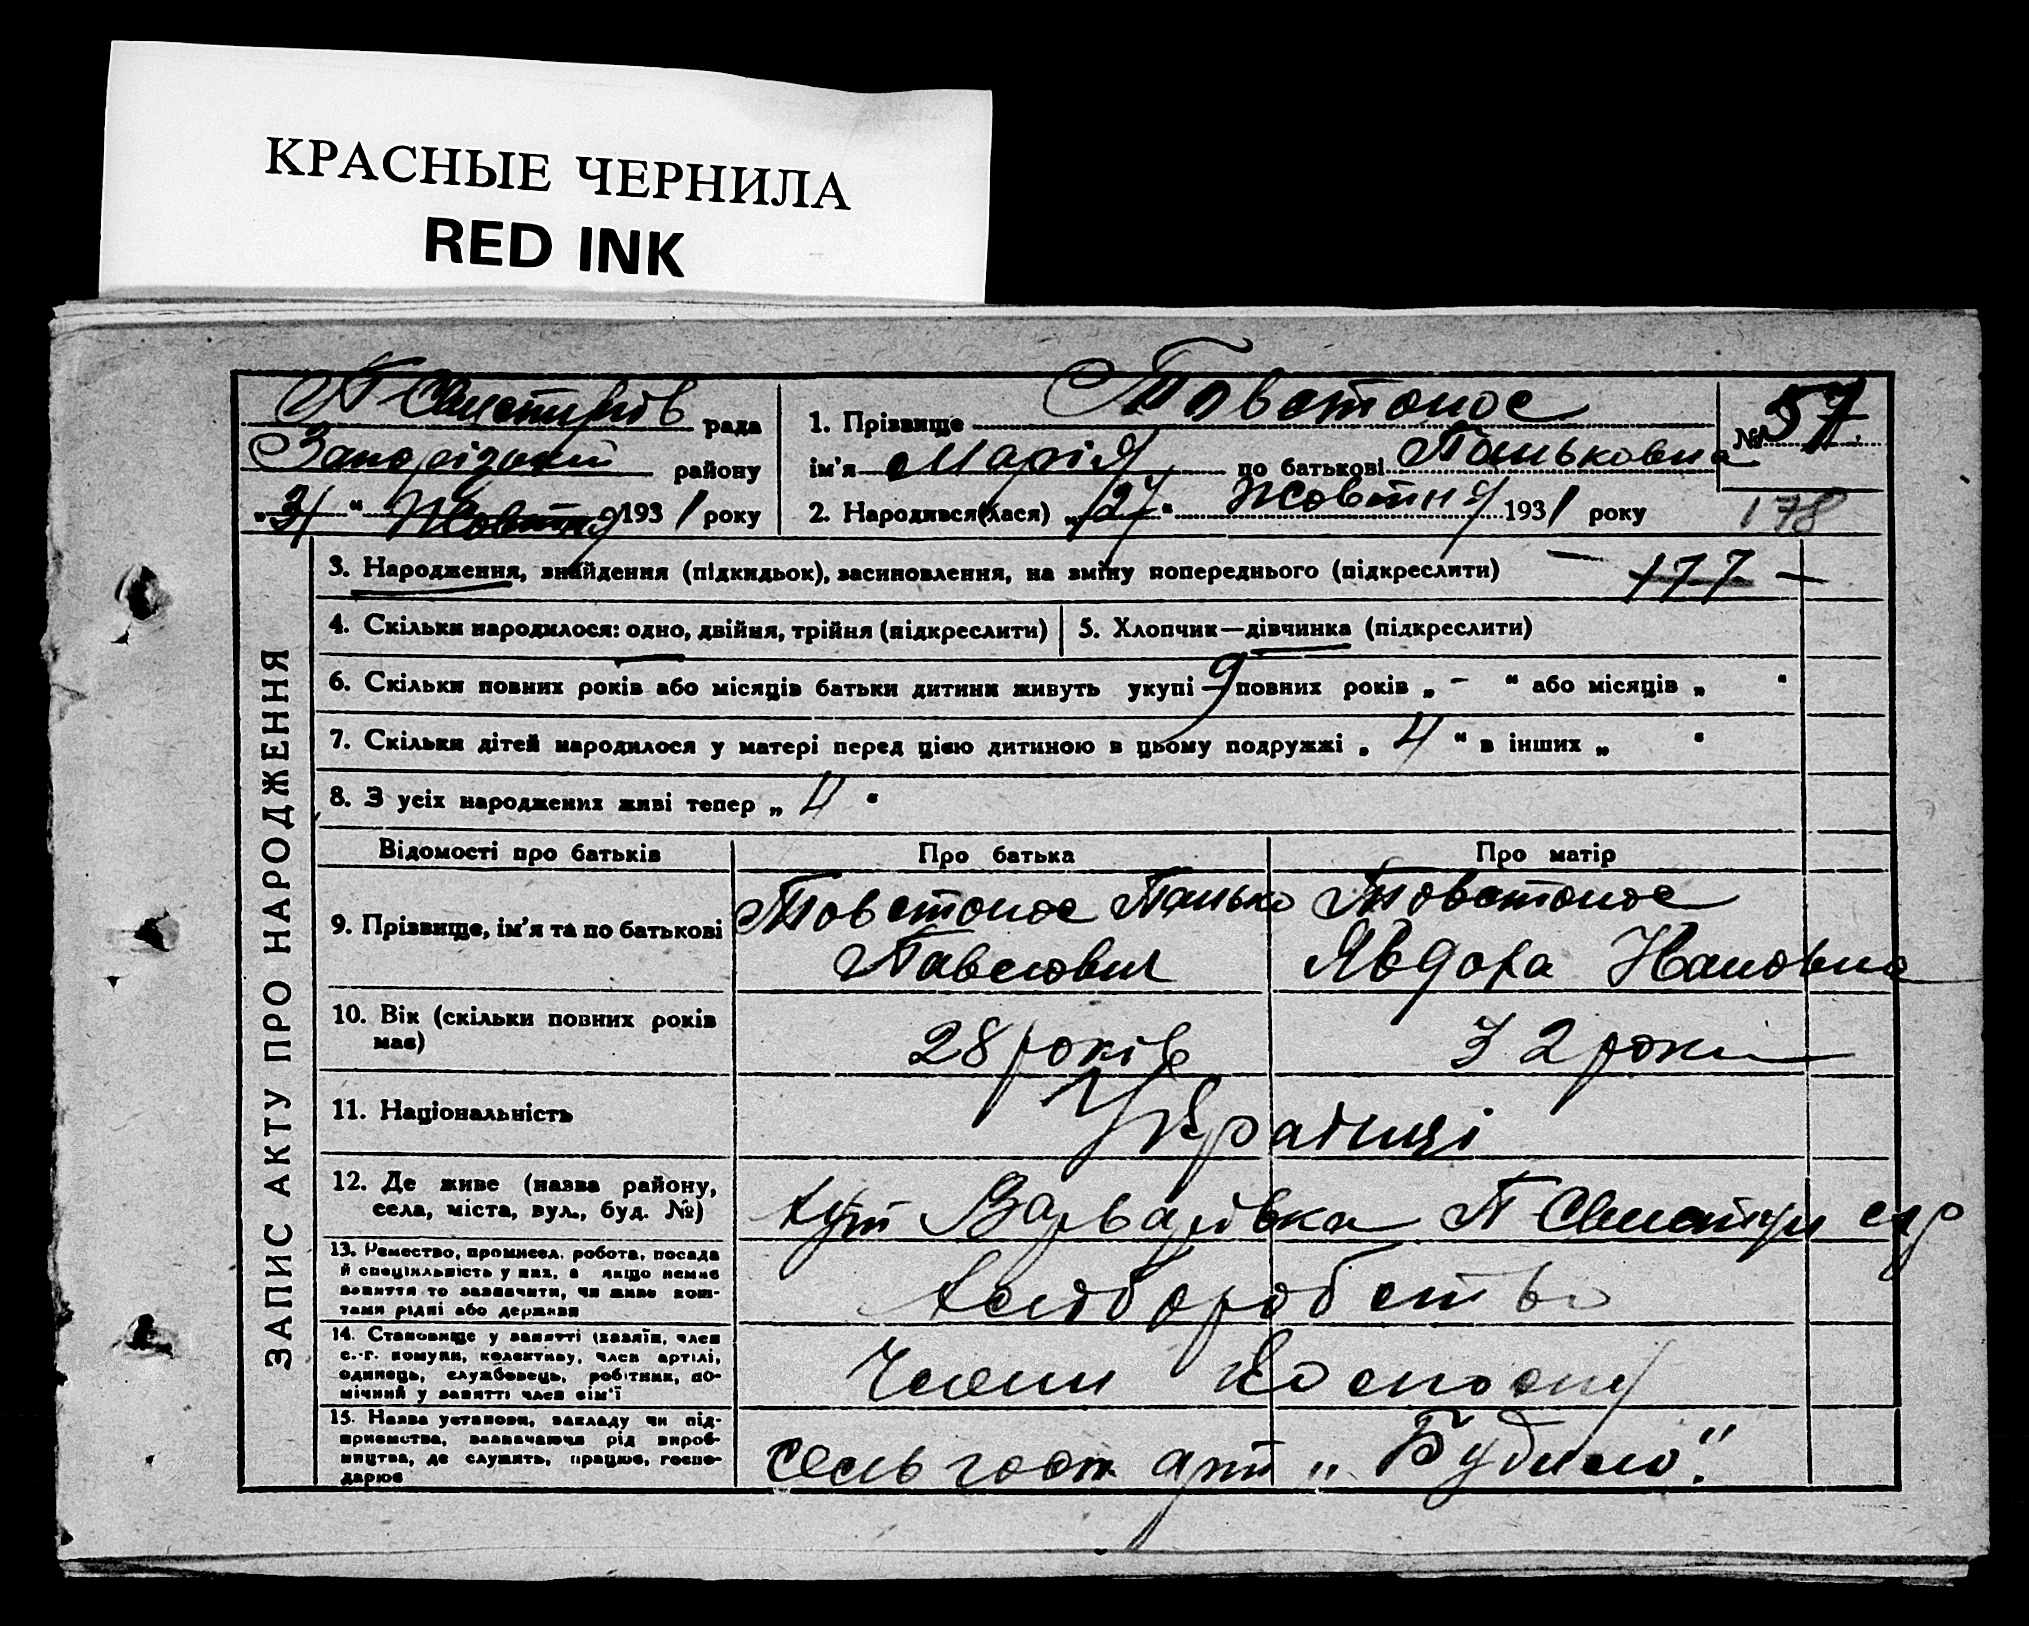 КРАСНЫЕ ЧЕРНИЛА
RED INK
рада
Запорізький району
„31“ Жовтня 1931 року
1. Прізвище Товстонос
ім'я Марія по батькові Паньковна
2. Народився(лася) „27“ Жовтня 1931 року
№ 57
178
ЗАПИС АКТУ ПРО НАРОДЖЕННЯ
3. Народження, знайдення (підкидьок), засиновлення, на зміну попереднього (підкреслити) — 177 —
4. Скільки народилося: одно, двійня, трійня (підкреслити)
5. Хлопчик—дівчинка (підкреслити)
6. Скільки повних років або місяців батьки дитини живуть укупі 9 повних років „ - “ або місяців „ “
7. Скільки дітей народилося у матері перед цією дитиною в цьому подружжі „ 4 “ в інших „ “
8. З усіх народжених живі тепер „ 4 “
Відомості про батьків
Про батька
Про матір
9. Прізвище, ім'я та по батькові
Товстонос Панько
Павлович
Товстонос
Явдоха Ивановна
10. Вік (скільки повних років
має)
28 років
32 роки
11. Національність
Українці
12. Де живе (назва району,
села, міста, вул., буд. №)
хут Варварівка
13. Ремество, промисел, робота, посада
й спеціяльність у них, а якщо немає
заняття то зазначити, чи живе кош-
тами рідні або держави
Хліборобство
14. Становище у занятті (хазяїн, член
с.-г. комуни, колективу, член артілі,
одинець, службовець, робітник, по-
мічний у занятті член сім'ї
Члени
15. Назва установи, закладу чи під-
приємства, зазначаючи рід вироб-
ництва, де служить, працює, госпо-
дарює
сель госп арт „